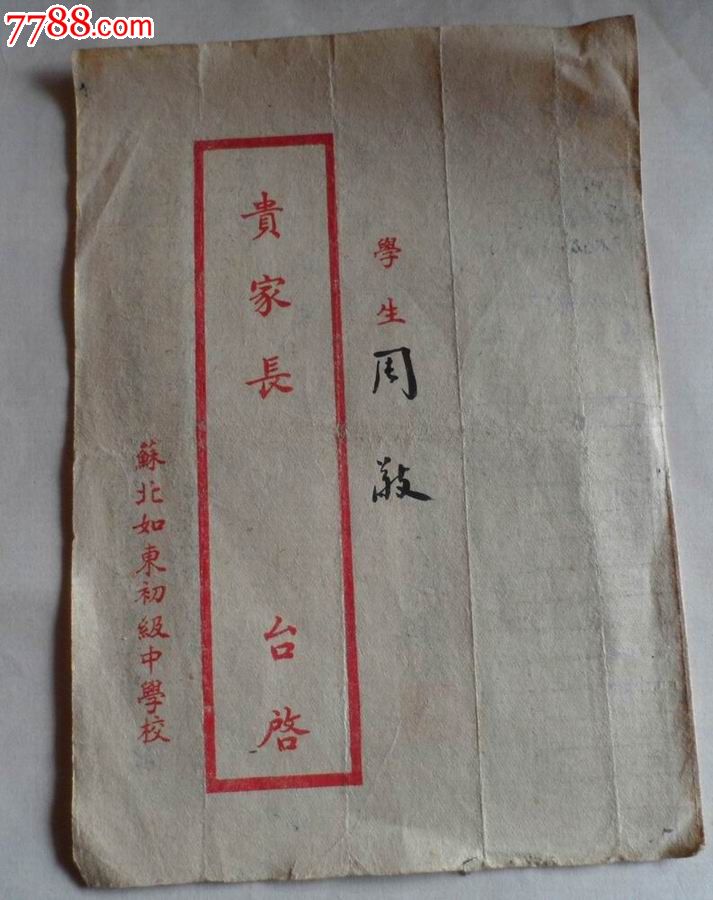 7788.com
學生周敬
貴家長 台啓
蘇北如東初級中學校